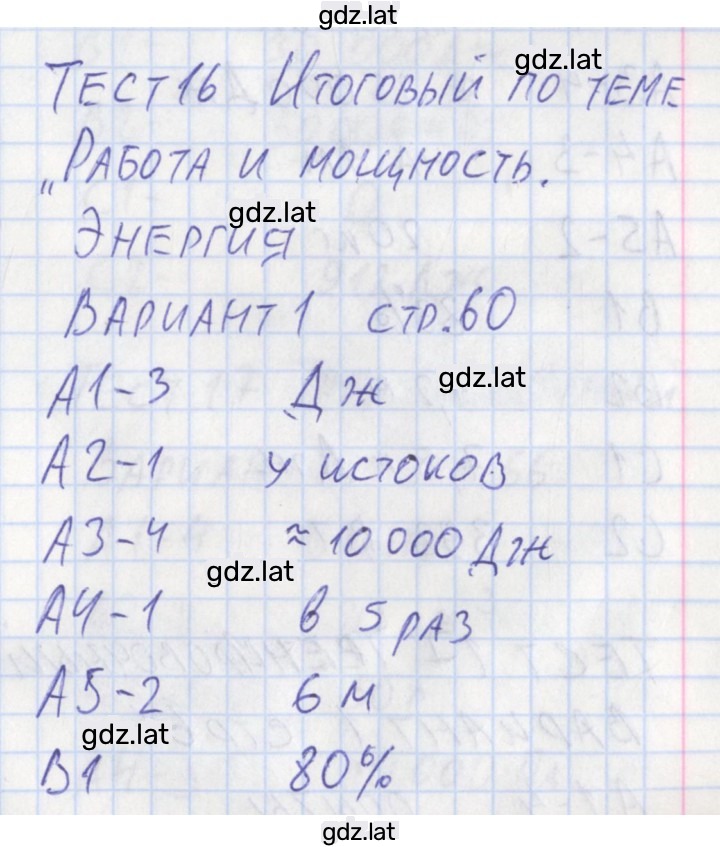 gdz.lat
gdz.lat
Тест 16 Итоговый по теме
„Работа и мощность.
gdz.lat
Энергия
Вариант 1 стр. 60
gdz.lat
А1-3 Дж
А2-1 у истоков
А3-4 ≈ 10 000 Дж
gdz.lat
А4-1 в 5 раз
А5-2 6 м
gdz.lat
В1 80%
gdz.lat